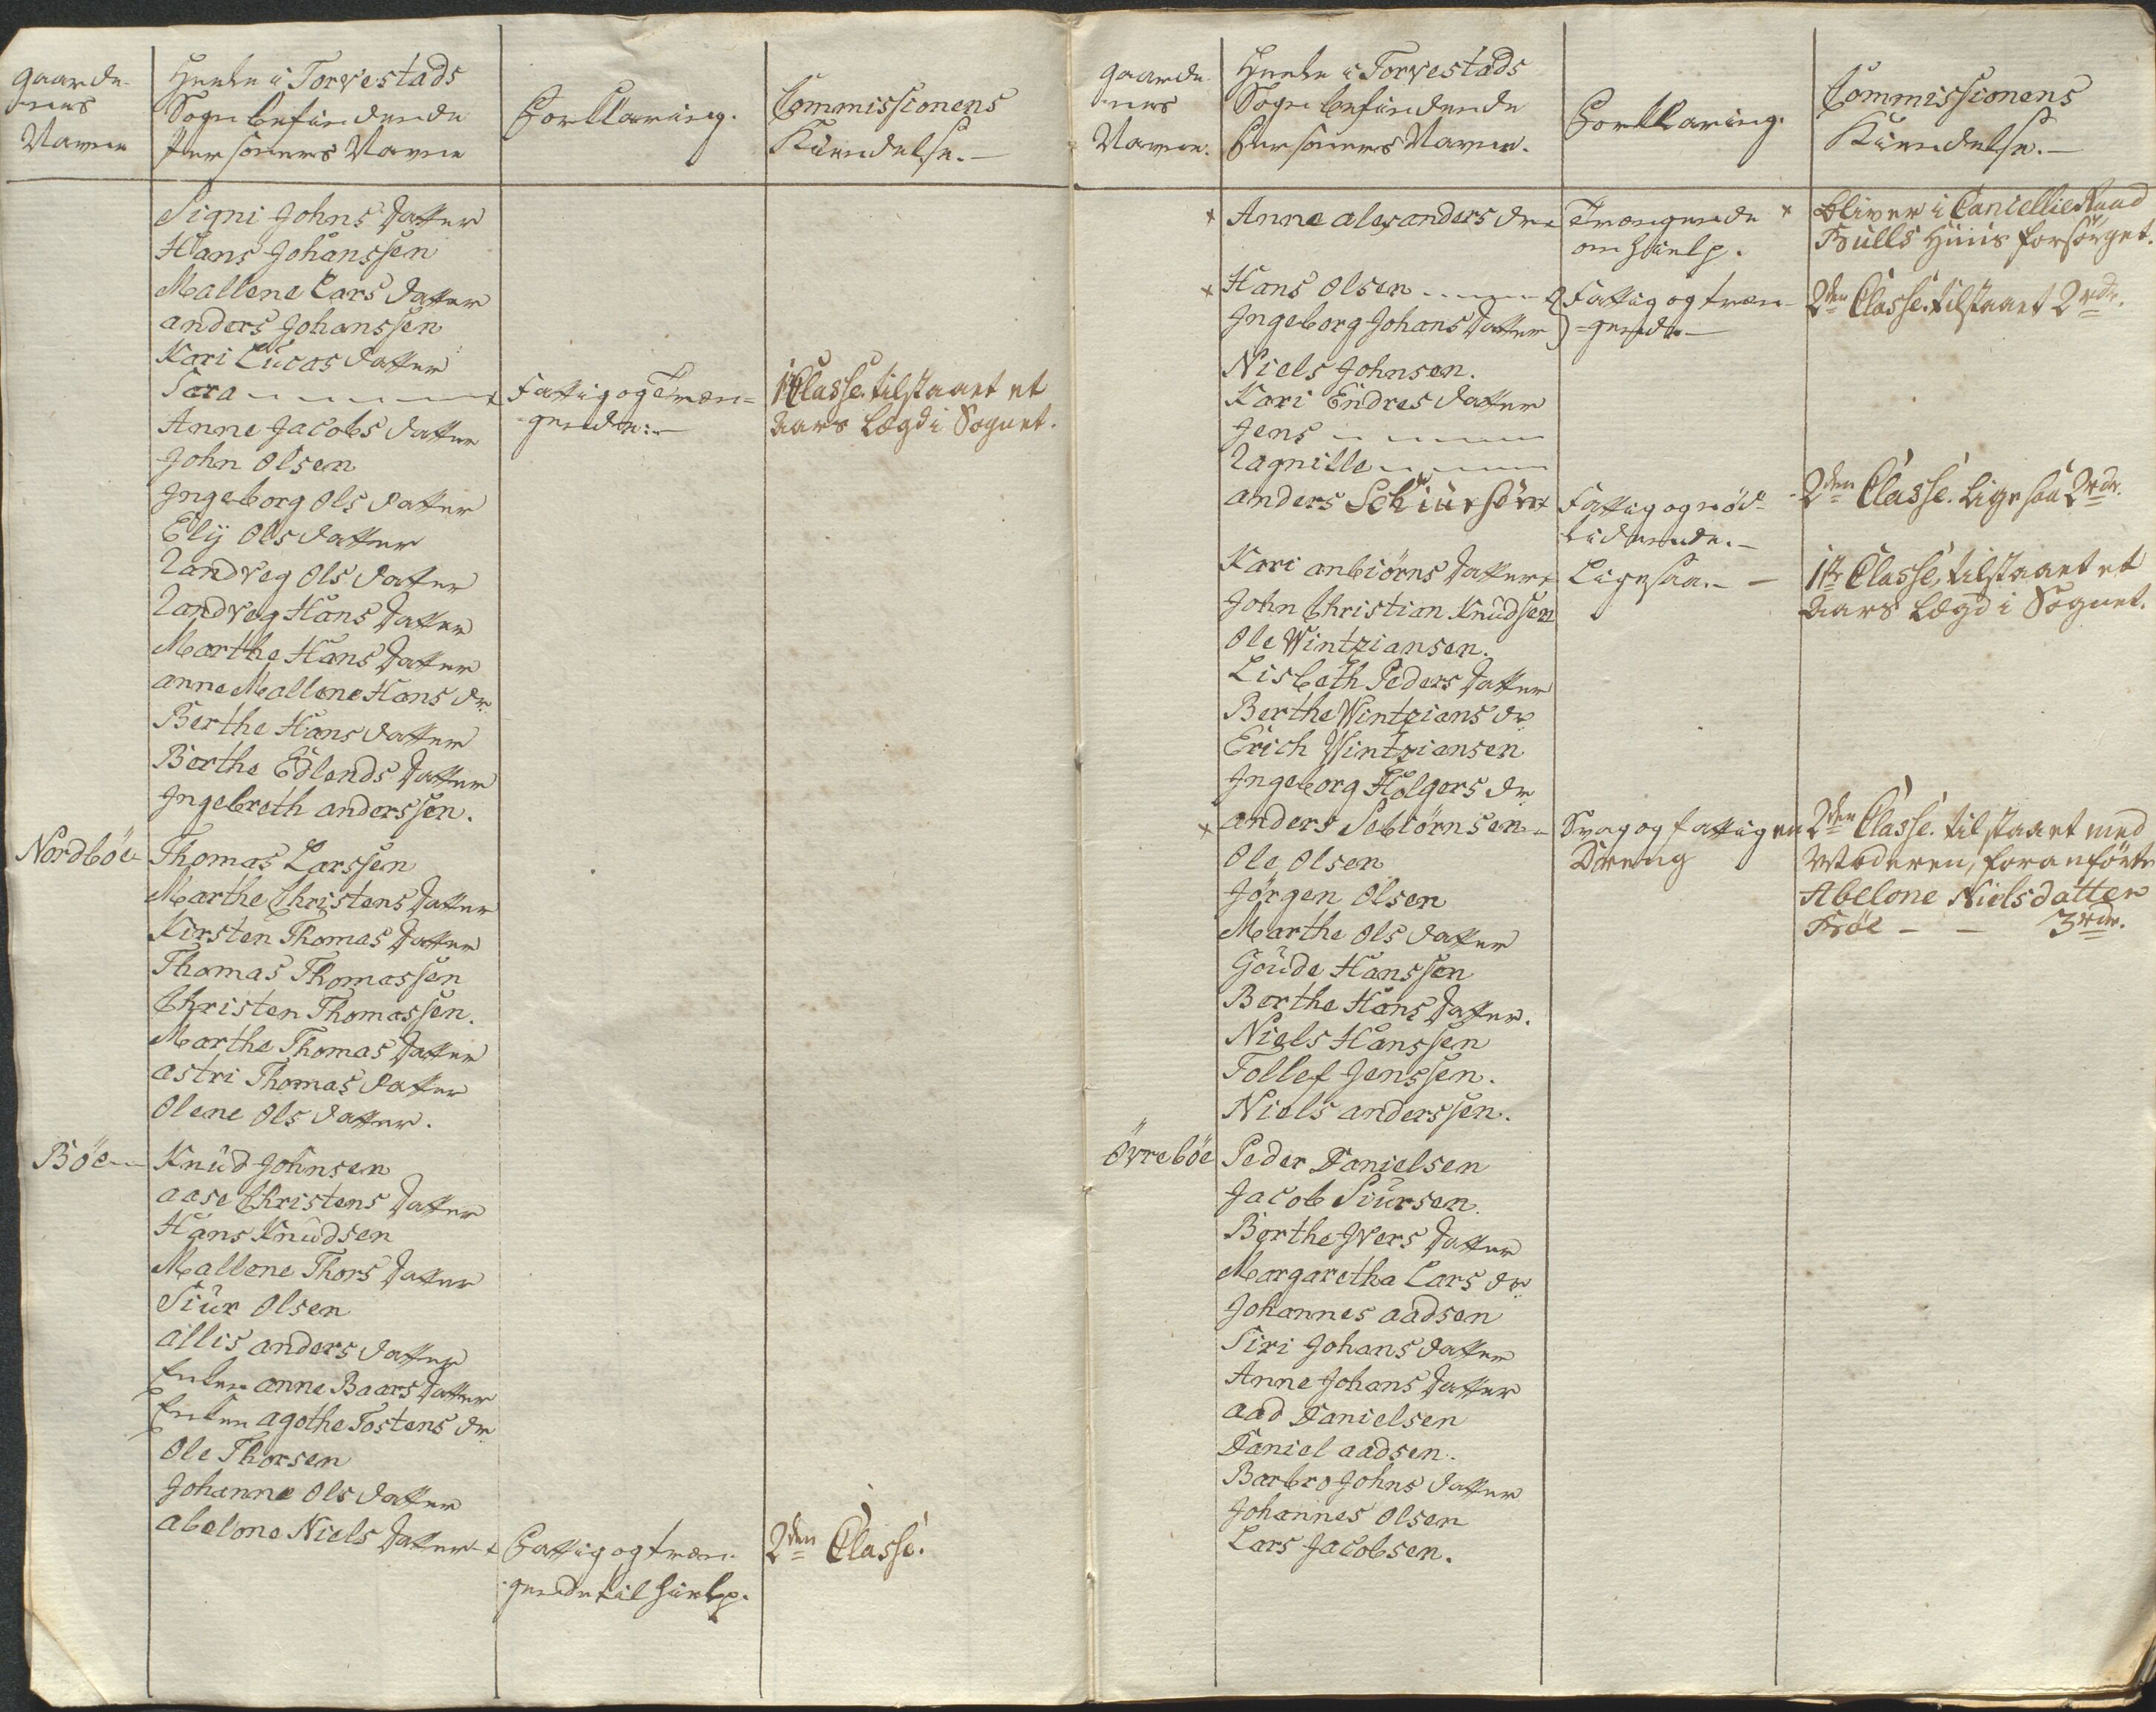 Gaarde-
nes
Navne
Heele i Torvestads
Sogn befindende
Personers Navne
Forklaring.
Commissionens
Kiendelse.
Signi Johns Datter
Hans Johanssen
Mallene Lars datter
anders Johanssen
Kari Lucas datter
Sara
Fattig og Træn-
gende.
1ste Classe. tilstaaet et
Aars Lægd i Sognet.
Anne Jacobs datter
John Olsen
Ingeborg Ols datter
Elij Ols datter
Randveg Ols datter
Randveg Hans Datter
Marthe Hans Datter
anne Mallene Hans dr
Berthe Hans datter
Berthe Edlends Datter
Ingebreth anderssen.
Nordböe
Thomas Larssen
Marthe Christens Datter
Kirsten Thomas Datter
Thomas Thomassen
Christen Thomassen.
Marthe Thomas Datter
astri Thomas datter
Olene Ols datter.
Böe
Knud Johnsen
aase Christens Datter
Hans Knudsen
Mallene Thors Datter
Siur Olsen
allis anders datter
Enken anne Baars Datter
Enken agothe Tostens dr
Ole Thorsen
Johanne Ols datter
abelone Niels Datter +
Fattig og træn-
gende til hielp.
2den Classe.
Gaarde-
nes
Navne.
Heele i Torvestads
Sogn befindende
Personers Navne.
Forklaring.
Commissionens
Kiendelse.
+ Anne alexanders dr +
Trængende
om hielp.
+ bliver i Cancellie Raad
Bulls Huus forsörget.
+ Hans Olsen
Fattig og træn-
2den Classe. tilstaaet 2 rdr.
Ingeborg Johans Datter
gende
Niels Johnsen.
Kari Endres datter
Jens
Ragnille
anders Schiursen +
Fattig og nöd-
lidende.
2den Classe. ligesaa 2 rdr.
Kari anbiörns Datter +
Ligesaa.
1ste Classe, tilstaaet et
Aars Lægd i Sognet.
John Christian Knudsen
Ole Wintziansen.
Lisbeth Peders Datter
Berthe Wintzians dr
Erich Wintziansen
Ingeborg Holgers dr
+ anders Sebiörnsen
Svag og fattig en
Dreng
2den Classe. tilstaaet med
Moderen, foranförte
Abelone Nielsdatter
Böe 3 rdr.
Ole Olsen
Jörgen Olsen
Marthe Ols datter
Goude Hanssen
Berthe Hans Datter.
Niels Hanssen
Tollef Jenssen.
Niels anderssen.
Övreböe
Peder Danielsen
Jacob Siursen.
Berthe Ivers Datter
Margaretha Lars dr
Johannes aadsen
Siri Johans datter
Anne Johans Datter
aad Danielsen
Daniel aadsen.
Barbro Johns datter
Johannes Olsen
Lars Jacobsen.